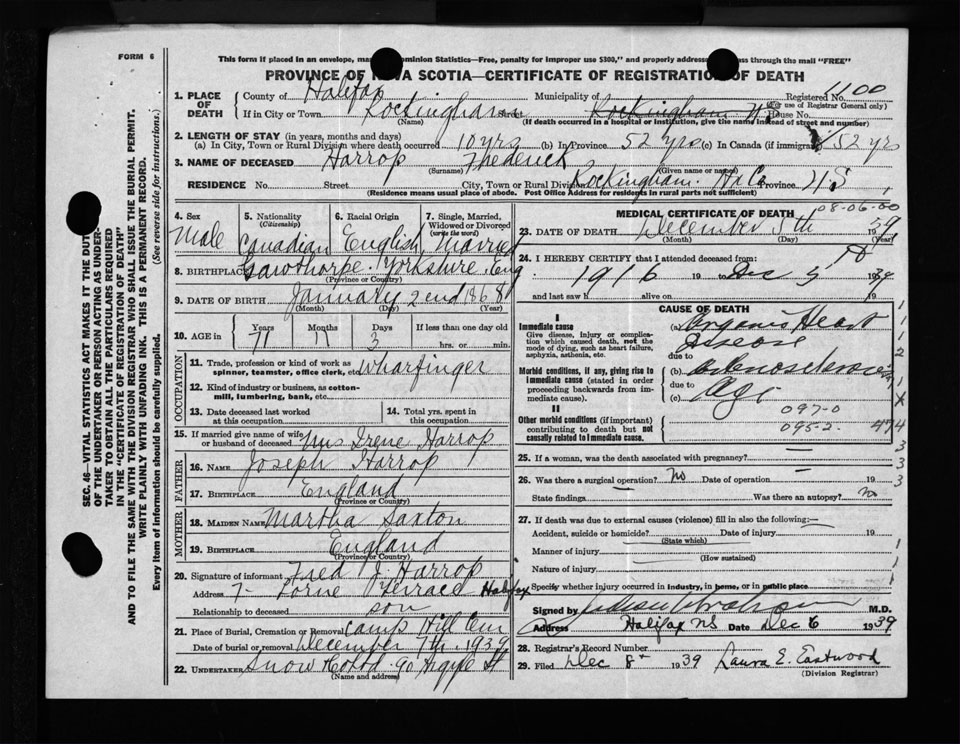 FORM 6
This form if placed in an envelope, ma ominion Statistics—Free, penalty for improper use $300," and properly address ss through the mail "FREE"
PROVINCE OF NOVA SCOTIA—CERTIFICATE OF REGISTRATION OF DEATH
1. PLACE OF DEATH
County of Halifax Municipality of Registered No. 1100
(For use of Registrar General only)
If in City or Town Rockingham Street Rockingham N.S. House No.
(Name) (If death occurred in a hospital or institution, give the name instead of street and number)
2. LENGTH OF STAY (in years, months and days)
(a) In City, Town or Rural Division where death occurred 10 yrs (b) In Province 52 yrs (c) In Canada (if immigrant) 52 yrs
3. NAME OF DECEASED Harrop Frederick
(Surname) (Given name or names)
RESIDENCE No. Street City, Town or Rural Division Rockingham Hx Co Province N S
(Residence means usual place of abode. Post Office Address for residents in rural parts not sufficient)
4. Sex Male
5. Nationality (Citizenship) Canadian
6. Racial Origin English
7. Single, Married, Widowed or Divorced (write the word) Married
8. BIRTHPLACE Gawthorpe Yorkshire, Eng
(Province or Country)
9. DATE OF BIRTH January 2nd 1868
(Month) (Day) (Year)
10. AGE in Years 71 Months 11 Days 3 If less than one day old
hrs. or min.
OCCUPATION
11. Trade, profession or kind of work as spinner, teamster, office clerk, etc. Wharfinger
12. Kind of industry or business, as cotton-mill, lumbering, bank, etc.
13. Date deceased last worked at this occupation
14. Total yrs. spent in this occupation
15. If married give name of wife or husband of deceased Mrs Irene Harrop
FATHER
16. NAME Joseph Harrop
17. BIRTHPLACE England
(Province or Country)
MOTHER
18. MAIDEN NAME Martha Saxton
19. BIRTHPLACE England
(Province or Country)
20. Signature of informant Fred J. Harrop
Address 7- Lorne Terrace Halifax
Relationship to deceased son
21. Place of Burial, Cremation or Removal Camp Hill Cem
Date of burial or removal December 7th 1939
22. UNDERTAKER Snow Co Ltd 90 Argyle St
(Name and address)
MEDICAL CERTIFICATE OF DEATH
08-06-00
23. DATE OF DEATH December 5th 1939
(Month) (Day) (Year)
24. I HEREBY CERTIFY that I attended deceased from
1916 19 to Dec 5 1939
and last saw h alive on 19
CAUSE OF DEATH
I
Immediate cause
Give disease, injury or complication which caused death, not the mode of dying, such as heart failure, asphyxia, asthenia, etc.
(a) Organic Heart
disease
due to
Morbid conditions, if any, giving rise to immediate cause (stated in order proceeding backwards from immediate cause).
(b) Arteriosclerosis
due to
(c) Age
II
097-0
095-2
Other morbid conditions (if important) contributing to death but not causally related to immediate cause.
25. If a woman, was the death associated with pregnancy?
26. Was there a surgical operation? No Date of operation 19
State findings Was there an autopsy? no
27. If death was due to external causes (violence) fill in also the following:
Accident, suicide or homicide? Date of injury 19
(State which)
Manner of injury
(How sustained)
Nature of injury
Specify whether injury occurred in industry, in home, or in public place
Signed by M.D.
Address Halifax NS Date Dec 6 1939
28. Registrar's Record Number
29. Filed Dec 8th 1939 Laura E. Eastwood
(Division Registrar)
SEC. 46—VITAL STATISTICS ACT MAKES IT THE DUTY
OF THE UNDERTAKER OR PERSON ACTING AS UNDER-
TAKER TO OBTAIN ALL THE PARTICULARS REQUIRED
IN THE "CERTIFICATE OF REGISTRATION OF DEATH"
AND TO FILE THE SAME WITH THE DIVISION REGISTRAR WHO SHALL ISSUE THE BURIAL PERMIT.
WRITE PLAINLY WITH UNFADING INK. THIS IS A PERMANENT RECORD.
Every item of information should be carefully supplied. (See reverse side for instructions.)